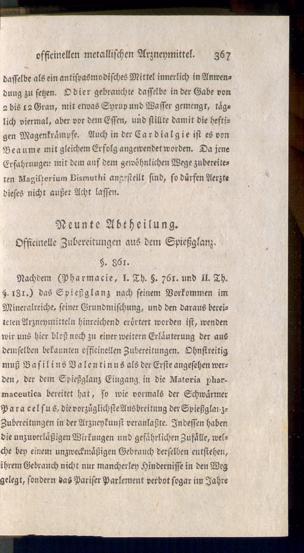 officinellen metallischen Arzneymittel. 367
dasselbe als ein antispasmodisches Mittel innerlich in Anwen-
dung zu setzen. Odier gebrauchte dasselbe in der Gabe von
2 bis 12 Gran, mit etwas Syrup und Wasser gemengt, täg-
lich viermal, aber vor dem Essen, und stillte damit die hefti-
gen Magenkrämpfe. Auch in der Cardialgie ist es von
Beaume mit gleichem Erfolg angewendet worden. Da jene
Erfahrungen mit dem auf dem gewöhnlichen Wege zubereite-
ten Magisterium Bismuthi angestellt sind, so dürfen Aerzte
dieses nicht außer Acht lassen.
Neunte Abtheilung.
Officinelle Zubereitungen aus dem Spießglanz.
§. 861.
Nachdem (Pharmacie, I. Th. §. 761. und II. Th.
§. 181.) das Spießglanz nach seinem Vorkommen im
Mineralreiche, seiner Grundmischung, und den daraus berei-
teten Arzneymitteln hinreichend erörtert worden ist, wenden
wir uns hier bloß noch zu einer weitern Erläuterung der aus
demselben bekannten officinellen Zubereitungen. Ohnstreitig
muß Basilius Valentinus als der Erste angesehen wer-
den, der dem Spießglanz Eingang in die Materia phar-
maceutica bereitet hat, so wie vormals der Schwärmer
Paracelsus, die vorzüglichste Ausbreitung der Spießglanz-
Zubereitungen in der Arzneykunst veranlaßte. Indessen haben
die unzuverläßigen Wirkungen und gefährlichen Zufälle, wel-
che bey einem unzweckmäßigen Gebrauch derselben entstehen,
ihrem Gebrauch nicht nur mancherley Hindernisse in den Weg
gelegt, sondern das Pariser Parlement verbot sogar im Jahre